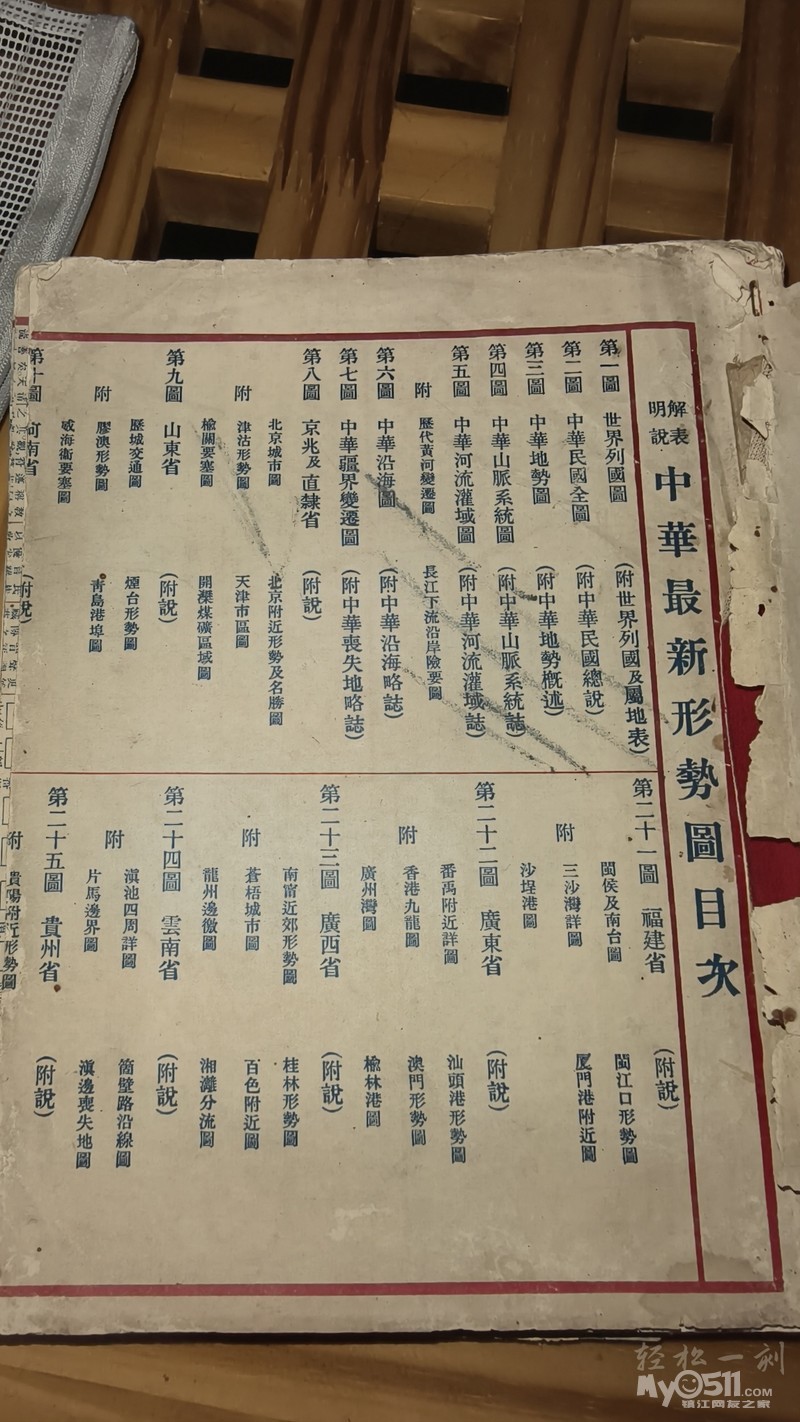 表解
說明
中華最新形勢圖目次
第一圖 世界列國圖 (附世界列國及屬地表)
第二圖 中華民國全圖 (附中華民國總說)
第三圖 中華地勢圖 (附中華地勢概述)
第四圖 中華山脈系統圖 (附中華山脈系統誌)
第五圖 中華河流灌域圖 (附中華河流灌域誌)
附 歷代黃河變遷圖 長江下流沿岸險要圖
第六圖 中華沿海圖 (附中華沿海略誌)
第七圖 中華疆界變遷圖 (附中華喪失地略誌)
第八圖 京兆及直隸省 (附說)
北京城市圖 北京附近形勢及名勝圖
附 津沽形勢圖 天津市區圖
楡關要塞圖 開灤煤礦區域圖
第九圖 山東省 (附說)
歷城交通圖 煙台形勢圖
附 膠澳形勢圖 靑島港埠圖
威海衛要塞圖
第十圖 河南省 (附說)
第二十一圖 福建省 (附說)
閩侯及南台圖 閩江口形勢圖
附 三沙灣詳圖 厦門港附近圖
沙埕港圖
第二十二圖 廣東省 (附說)
番禺附近詳圖 汕頭港形勢圖
附 香港九龍圖 澳門形勢圖
廣州灣圖 楡林港圖
第二十三圖 廣西省 (附說)
南甯近郊形勢圖 桂林形勢圖
附 蒼梧城市圖 百色附近圖
龍州邊徼圖 湘灕分流圖
第二十四圖 雲南省 (附說)
滇池四周詳圖 箇壁路沿線圖
附 片馬邊界圖 滇邊喪失地圖
第二十五圖 貴州省 (附說)
附 貴陽附近形勢圖
轻松一刻
My0511.COM
镇江网友之家